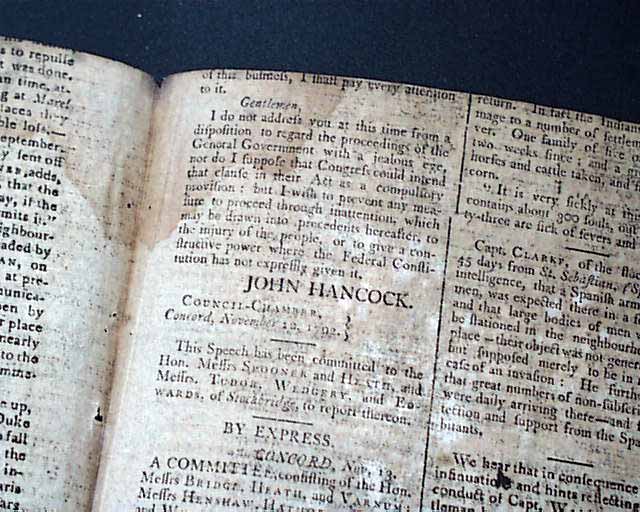 s to repulse
t was done.
an time, at.
g at Marſ
places they
ble loſs.—
eptember.
y ſent off
adds,
s that the
ay, if the
mits it."
eighbour-
aded by
AN, on
at pre-
munica-
pen by
r place
nearly
to the
mine-
e up,
Duke
o fall
the
in-
aris
ars
of this buſineſs, I ſhall pay every attention
to it.
Gentlemen,
I do not addreſs you at this time from a
diſpoſition to regard the proceedings of the
General Government with a jealous eye,
nor do I ſuppoſe that Congreſs could intend
that clauſe in their Act as a compulſory
proviſion: but I wiſh to prevent any mea-
ſure to proceed through inattention, which
may be drawn into precedents hereafter to
the injury of the people, or to give a con-
ſtructive power where the Federal Conſti-
tution has not expreſsly given it.
JOHN HANCOCK.
COUNCIL-CHAMBER, }
Concord, November 12, 1792. }
This Speech has been committed to the
Hon. Meſſrs SPOONER and HEATH, and
Meſſrs. TUDOR, WEDGERY, and ED-
WARDS, of Stockbridge, to report thereon.
BY EXPRESS.
CONCORD, Nov. 13.
A COMMITTEE, conſiſting of the Hon.
Meſſrs BRIDGE, HEATH, and VARNUM;
Meſſrs HENSHAW,
return. In fact the Indian
mage to a number of ſettlem
ver. One family of five or
two weeks ſince; and a gre
horſes and cattle taken, and
corn.
"It is very ſickly at this
contains about 300 ſouls, out
ty-three are ſick of fevers and
Capt. CLARKE, of the
45 days from St. Sebaſtian, (S
intelligence, that a Spaniſh arm
men, was expected there in a f
and that large bodies of men w
be ſtationed in the neighbourh
place—their object was not gener
but ſuppoſed merely to be in
caſe of an invaſion: He further
that great numbers of
were daily arriving there—and
tection and ſupport from the Spa
bitants.
We hear that in conſequence
inſinuations and hints reflecting
conduct of Capt.